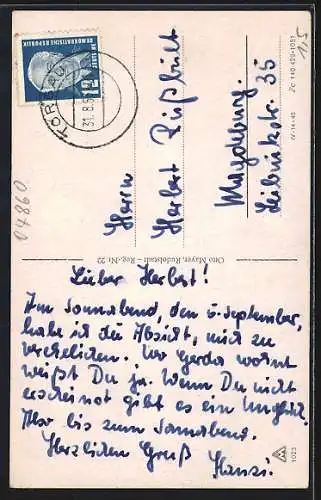 DEUTSCHE DEMOKRATISCHE REPUBLIK
12
TORGAU
31.8.5
1,5
Zc 140 499-1051
IV-14-45
Herrn
Herbert
Magdeburg.
Leibnizstr. 35
04860
Otto Mayer, Rudolstadt – Reg.-Nr. 22
Lieber Herbert!
Am Sonnabend, den 6. September,
habe ich die Absicht, mich zu
verehelichen. Wo Gerda wohnt
weißt Du ja. Wenn Du nicht
erscheinst gibt es ein Unglück.
Also bis zum Sonnabend.
Herzlichen Gruß
Hansi.
1023